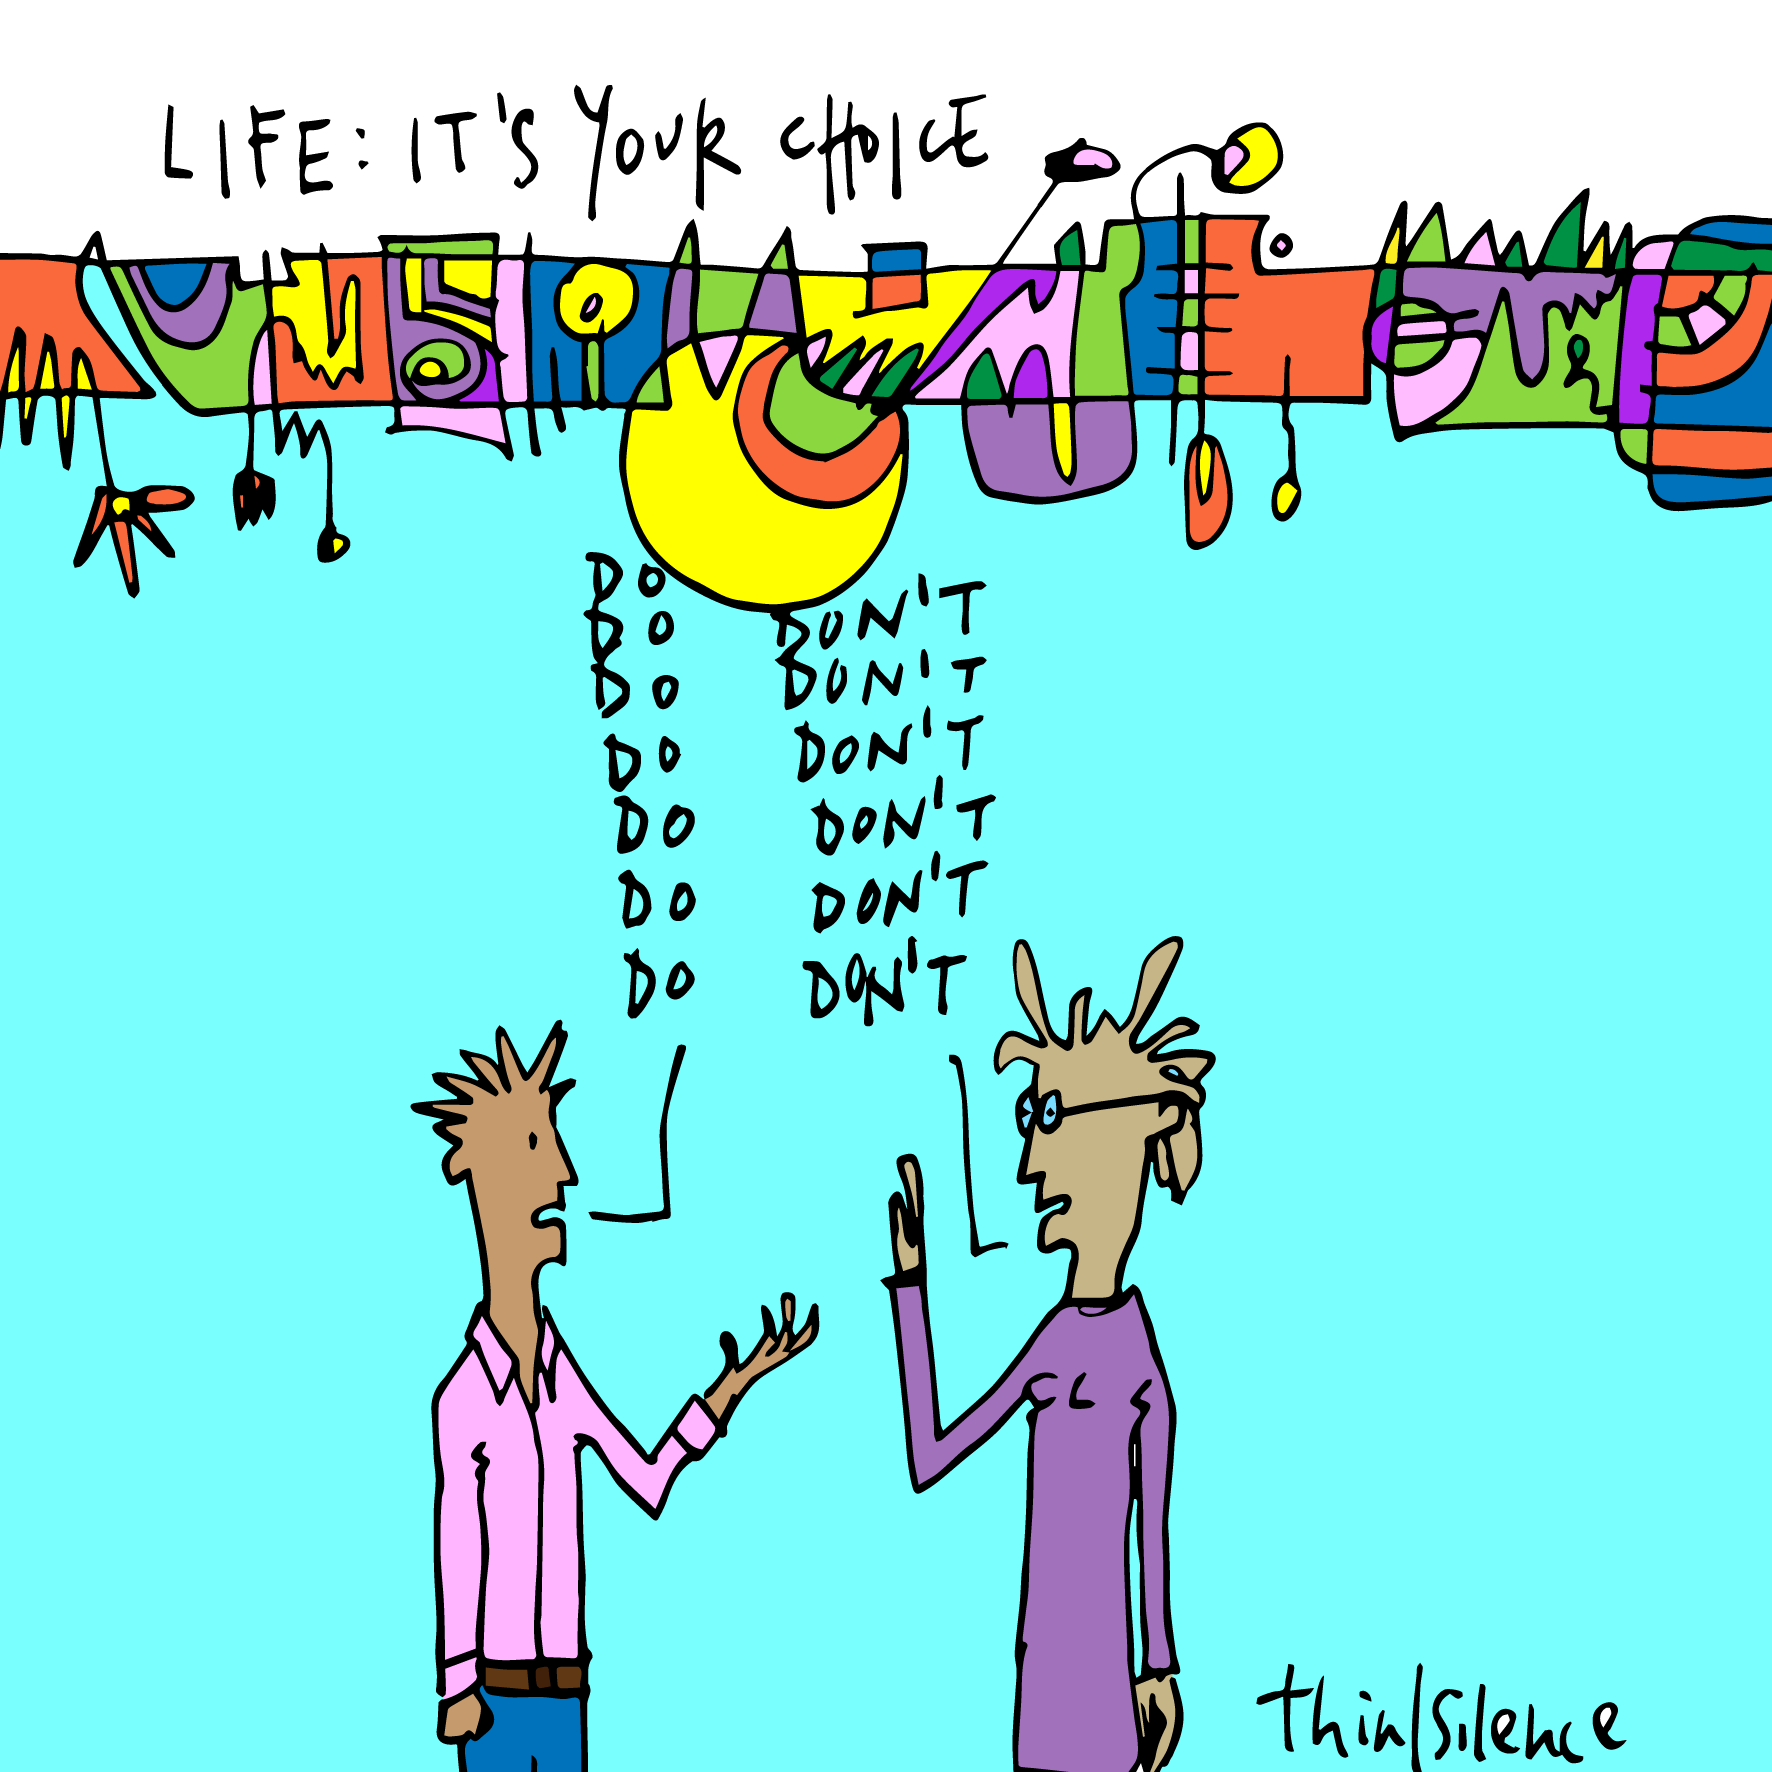 LIFE: IT'S YOUR CHOICE
DO
DO
DO
DO
DO
DO
DO
DON'T
DON'T
DON'T
DON'T
DON'T
DON'T
thin/silence